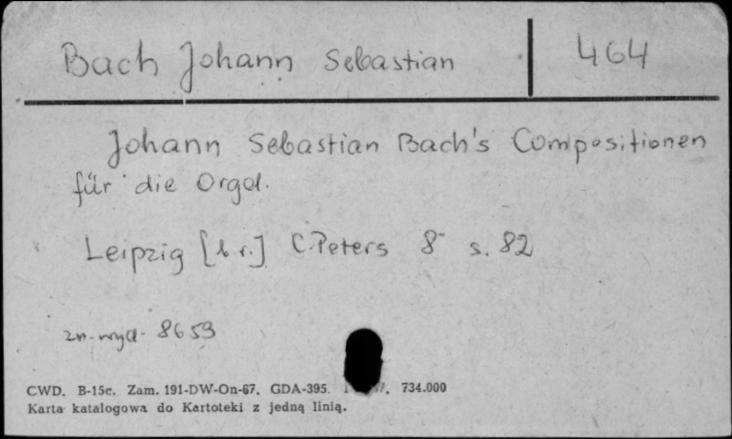 Bach Johann Sebastian 464
Johann Sebastian Bach's Compositionen
für die Orgel.
Leipzig [b.r.] C. Peters 8° s. 82
zn. wyd. 8653
CWD. B-15c. Zam. 191-DW-On-67. GDA-395. 734.000
Karta katalogowa do Kartoteki z jedną linią.